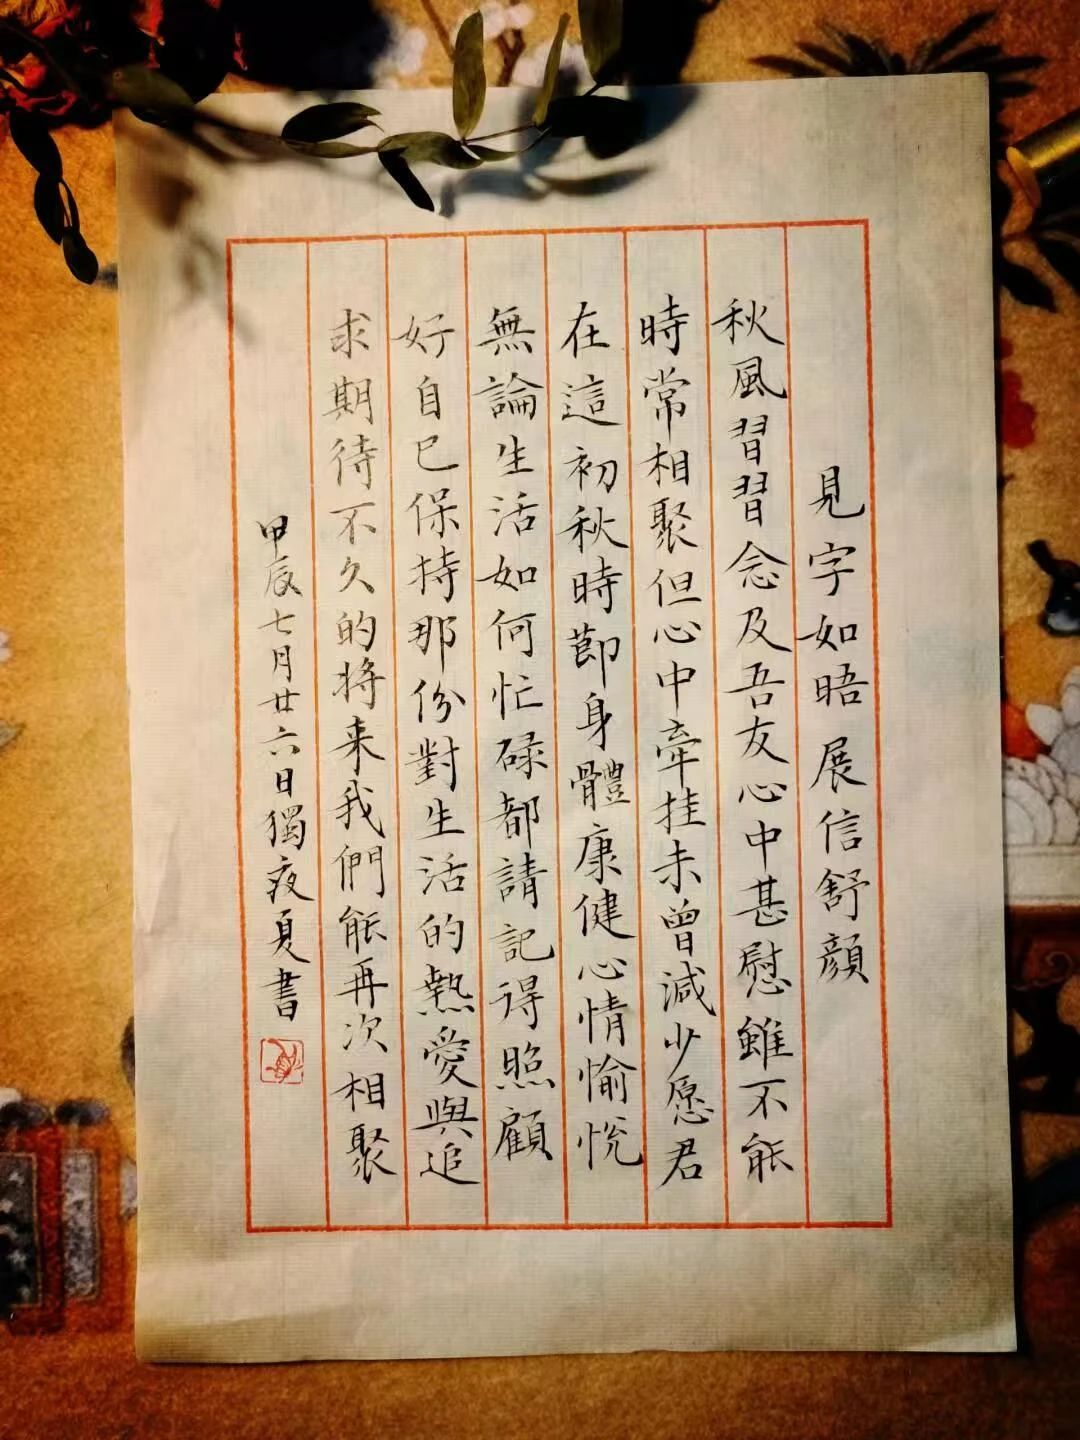 見字如晤展信舒顏
秋風習習念及吾友心中甚慰雖不能
時常相聚但心中牽挂未曾減少愿君
在這初秋時節身體康健心情愉悅
無論生活如何忙碌都請記得照顧
好自已保持那份對生活的熱愛與追
求期待不久的将来我們能再次相聚
甲辰七月廿六日獨夜夏書